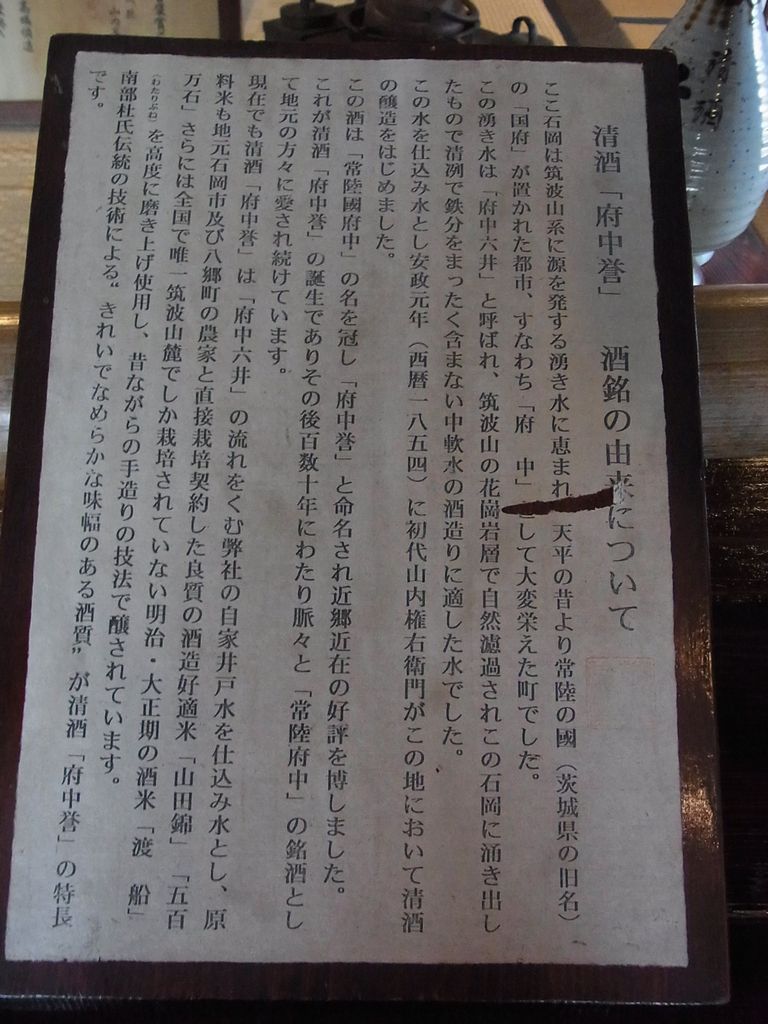 清酒「府中誉」 酒銘の由来について
ここ石岡は筑波山系に源を発する湧き水に恵まれ 天平の昔より常陸の國（茨城県の旧名）
の「国府」が置かれた都市、すなわち「府 中」 して大変栄えた町でした。
この湧き水は「府中六井」と呼ばれ、筑波山の花崗岩層で自然濾過されこの石岡に涌き出し
たもので清冽で鉄分をまったく含まない中軟水の酒造りに適した水でした。
この水を仕込み水とし安政元年（西暦一八五四）に初代山内権右衛門がこの地において清酒
の醸造をはじめました。
この酒は「常陸國府中」の名を冠し「府中誉」と命名され近郷近在の好評を博しました。
これが清酒「府中誉」の誕生でありその後百数十年にわたり脈々と「常陸府中」の銘酒とし
て地元の方々に愛され続けています。
現在でも清酒「府中誉」は「府中六井」の流れをくむ弊社の自家井戸水を仕込み水とし、原
料米も地元石岡市及び八郷町の農家と直接栽培契約した良質の酒造好適米「山田錦」「五百
万石」さらには全国で唯一筑波山麓でしか栽培されていない明治・大正期の酒米「渡 船」
（わたりぶね）を高度に磨き上げ使用し、昔ながらの手造りの技法で醸されています。
南部杜氏伝統の技術による〝きれいでなめらかな味幅のある酒質〟が清酒「府中誉」の特長
です。